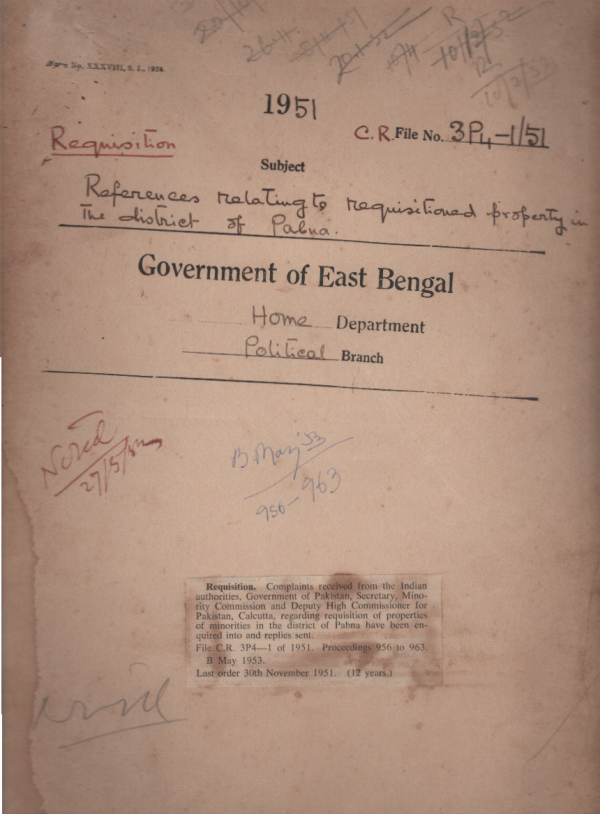 20/2/52
R
10/2/52
R
10/2/53
1951
Requisition
C.R. File No. 3P4-1/51
Subject
References relating to requisitioned property in
the district of Pabna.
Government of East Bengal
Home Department
Political Branch
Noted
27/5/52
B May '53
956-963
Requisition. Complaints received from the Indian
authorities, Government of Pakistan, Secretary, Mino-
rity Commission and Deputy High Commissioner for
Pakistan, Calcutta, regarding requisition of properties
of minorities in the district of Pabna have been en-
quired into and replies sent.
File C.R. 3P4—1 of 1951. Proceedings 956 to 963.
B May 1953.
Last order 30th November 1951. (12 years.)